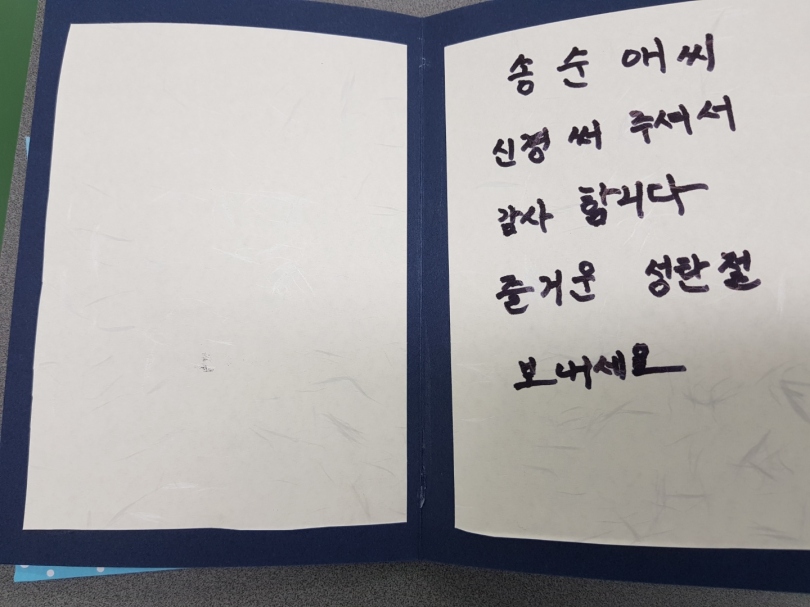 송 순 애 씨
신정 써 주셔서
감사 합니다
즐거운 성탄절
보내세요